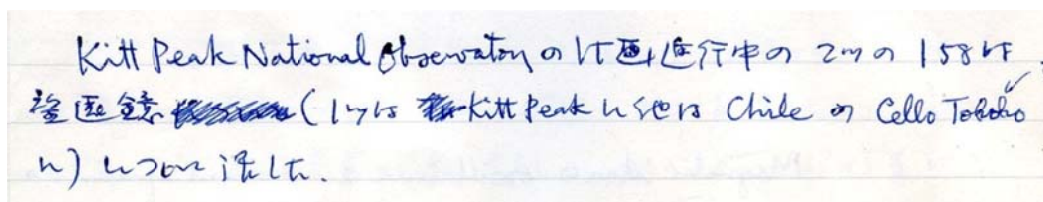 Kitt Peak National Observatory の計画進行中の 2つの 158吋
望遠鏡 (1つは Kitt Peak に他は Chile の Cello Tololo
に) について話した.